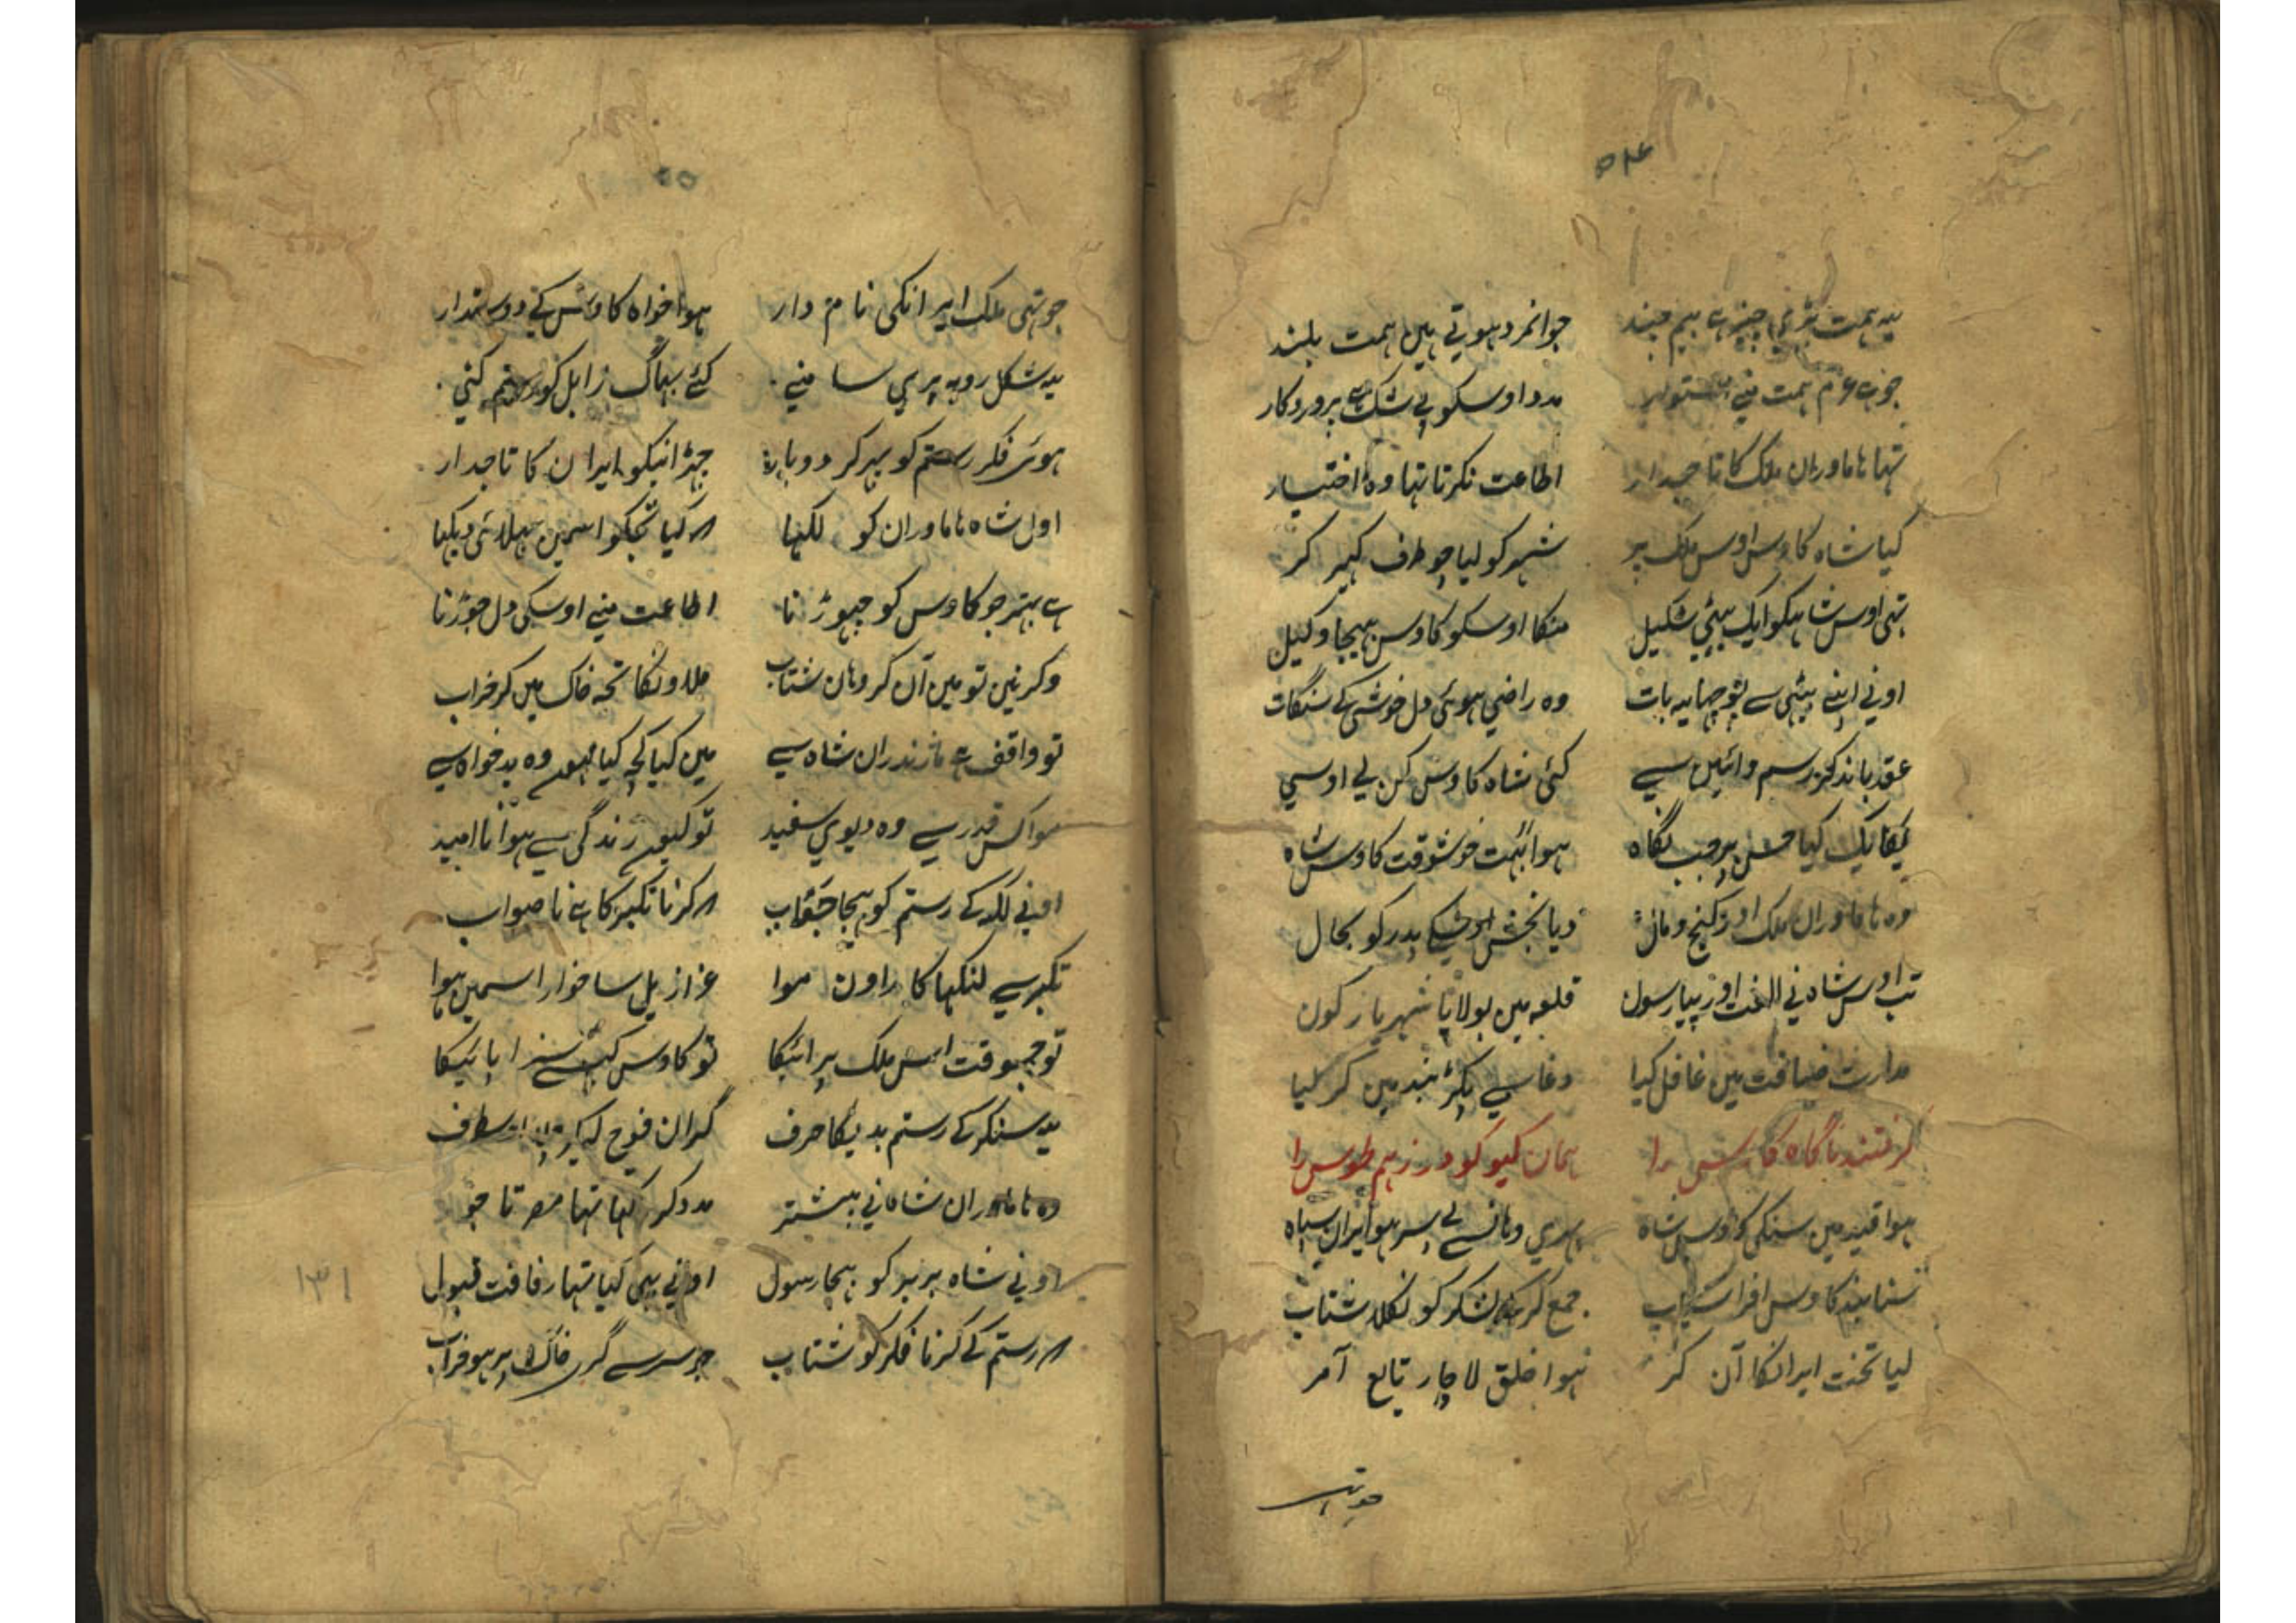 ۵۴
یہ ہمت بڑی چیز ہے جوانمرد ہوتی ہین ہمت بلند
جو ہے عزم ہمت منی استوار مدد اوسکو بی شک ہے پروردکار
تہا ہاماوران ملک کا تاجدار اطاعت نکرتا تہا وہ اختیار
کیا شاہ کاوس اوس ملک پر شہر کو لیا چو طرف کہیر کر
تہی اوس شاہکو ایک بیٹی شکیل منکا اوسکو کاوس بہیجا وکیل
اونی اپنے بیٹی سے پوچہا یہ بات وہ راضی ہوئی دل خوشی کے سنگات
عقد باندکر رسم وآئین سے کئی شاہ کاوس کن لی اوسی
یکایک کیا حسن پر جب نگاہ ہوا بہت خوشوقت کاوس شاہ
وہ ہاماوران ملک اور کنج ومال دیا بخش اوسکے پدر کو بحال
تب اوس شاہ نی الفت اور پیار سون قلعہ مین بولایا شہریار کون
مدارت ضیافت مین غافل کیا دغا سے پکڑ بند مین کر لیا
گرفتند ناگاہ کاوس را ہمان گیو گودرز ہم طوس را
ہوا قید مین سنکی کاوس شاہ پہری وہانسے بے سر ہو ایران سپاہ
سنا بند کاوس افراسیاب جمع کر لشکر کو نکلا شتاب
لیا تخت ایرانکا آن کر ہوا خلق لاچار تابع آمر
جو تہی
۵۵
جو تہی ملک ایرانکی نامدار ہوا خواہ کاوس کے دوستدار
یہ شکل روبہ پری سامنے کئے بہاگ زابل کو رستم کنی
ہوئی فکر رستم کو پہر کر دوبارہ چہڑانیکو ایران کا تاجدار
اول شاہ ہاماوران کو لکہا کہ کیا تجکو اسمین بہلائی دیکہا
ہے بہتر جو کاوس کو چہوڑنا اطاعت منی اوسکی دل جوڑنا
وکر نین تو مین آن کر وہان شتاب ملاونکا تجہ خاک مین کر خراب
تو واقف ہے مازندران شاہ سے مین کیا کچہ کیا ہون وہ بدخواہ سے
موا کس قدر سے وہ دیوی سفید تو کیون زندگی سے ہوا ناامید
اونی لکہ کے رستم کو بہیجا جواب کہ کرنا تکبر کا ہے ناصواب
تکبر سے لنکہا کا راون موا عزازیل سا خوار اسمین ہوا
تو جسوقت اس ملک پر ائیکا تو کاوس کیسے سزا پائیکا
یہ سنکر کے رستم بدیکا حرف گران فوج لیکر اسطرف
وہ ہاماوران شاہ نی پیشتر مدد کر کہا تہا مصر تاجور
اونی شاہ بربر کو بہیجا رسول اونی بہی کیا تہا رفاقت قبول
کہ رستم کے کرنا فکر کو شتاب جو سر سے گر خاک پر ہو خراب
۱۳۱